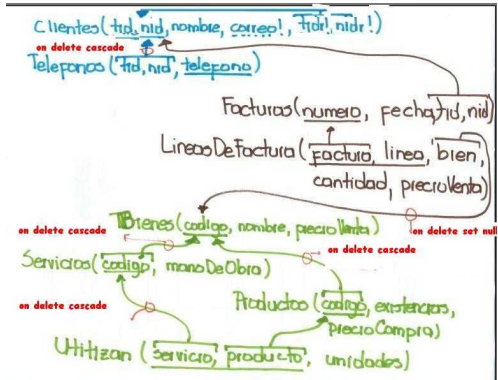 Clientes(tid, nid, nombre, correo!, tidr!, nidr!)
on delete cascade
Telefonos(tid, nid, telefono)
Facturas(numero, fecha, tid, nid)
LineasDeFactura(factura, linea, bien,
cantidad, precioVenta)
on delete set null
Bienes(codigo, nombre, precioVenta)
on delete cascade
on delete cascade
Servicios(codigo, manoDeObra)
on delete cascade
Productos(codigo, existencias,
precioCompra)
Utilizan(servicio, producto, unidades)